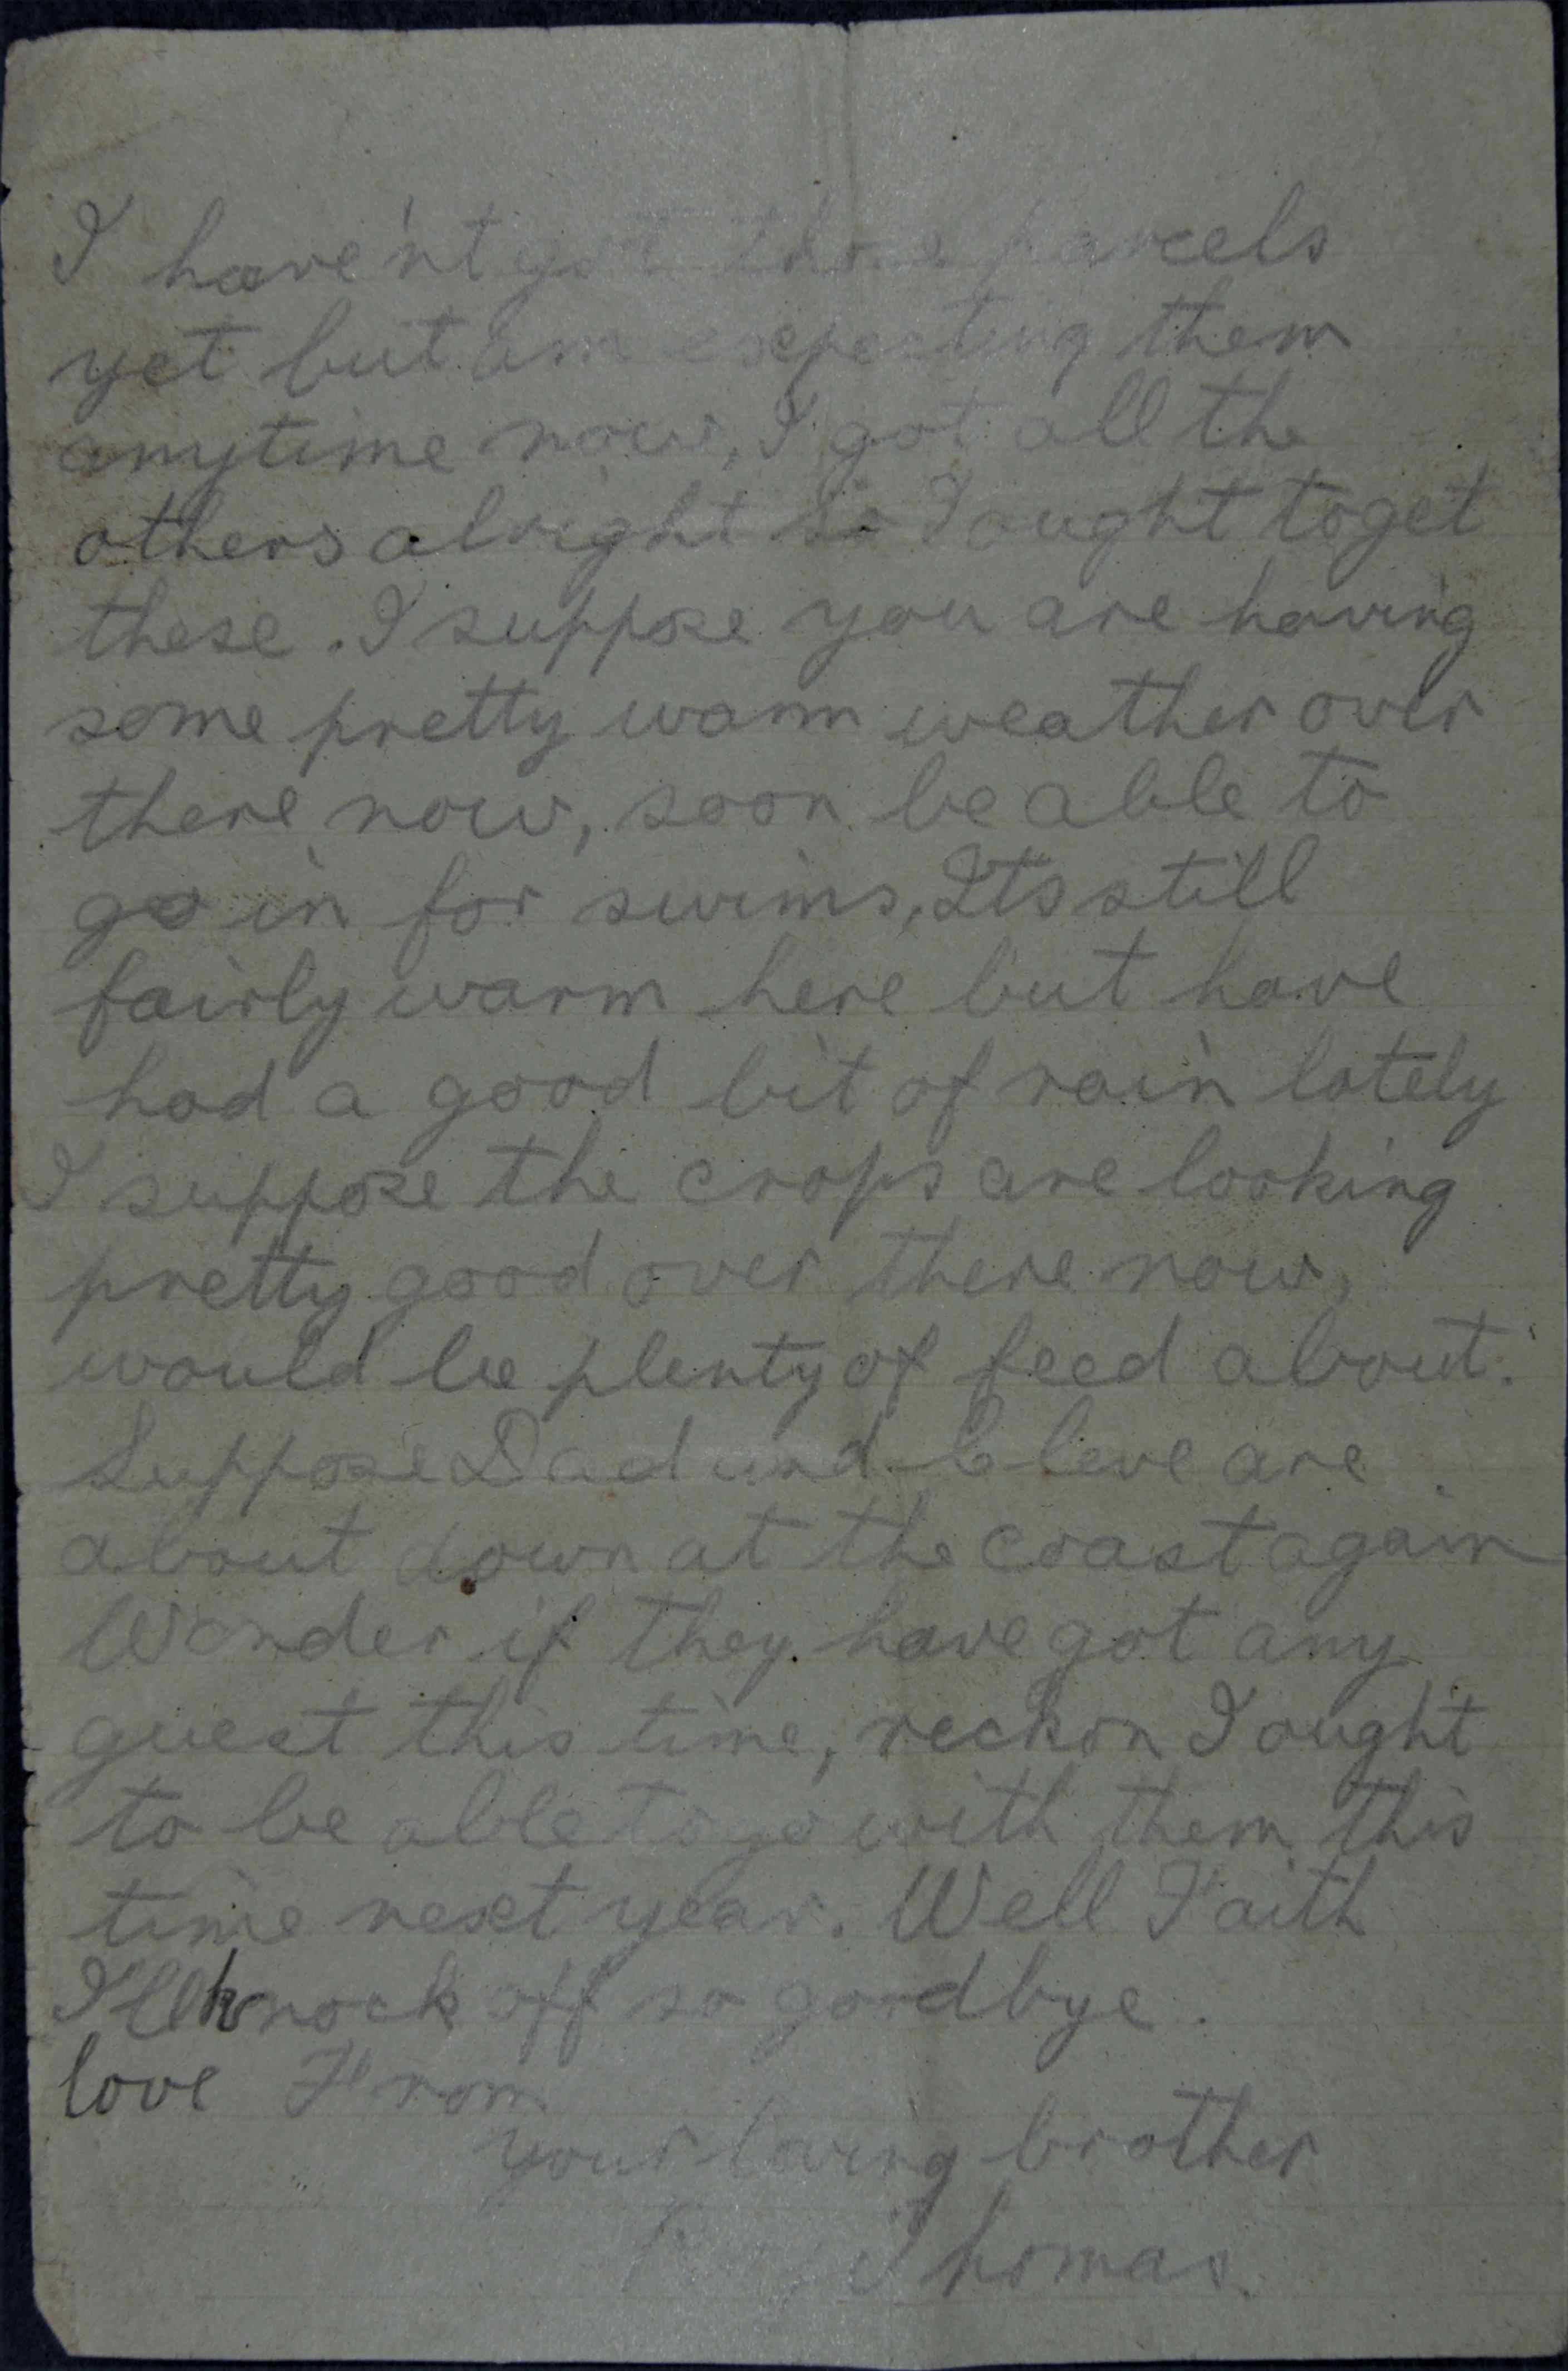 I have'nt got those parcels
yet but am expecting them
anytime now, I got all the
others alright so I ought to get
these. I suppose you are having
some pretty warm weather over
there now, soon be able to
go in for swims, Its still
fairly warm here but have
had a good bit of rain lately
I suppose the crops are looking
pretty good over there now,
would be plenty of feed about.
Suppose Dad and Cleve are
about down at the coast again
Wonder if they have got any
guest this time, reckon I ought
to be able to go with them this
time next year. Well Faith
I'll knock off so goodbye.
love From
your loving brother
Thomas.